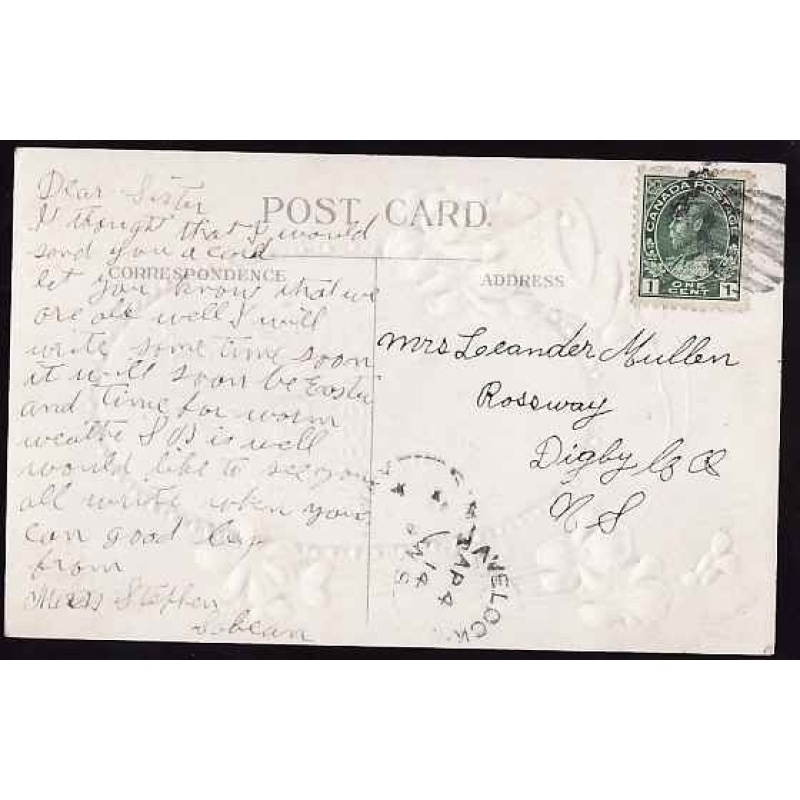 Dear Sister
I thought that I would
send you a card
let you know that we
are all well I will
write some time soon
it will soon be Easter
and time for worm
weathe S B is well
would like to see you
all write when you
can good by
from
Mrs Stephen
Sabean
POST CARD.
CORRESPONDENCE
ADDRESS
CANADA POSTAGE
1 ONE CENT 1
Mrs Leander Mullen
Rossway
Digby Co
N S
AVELOCK
AP 4
14
N S